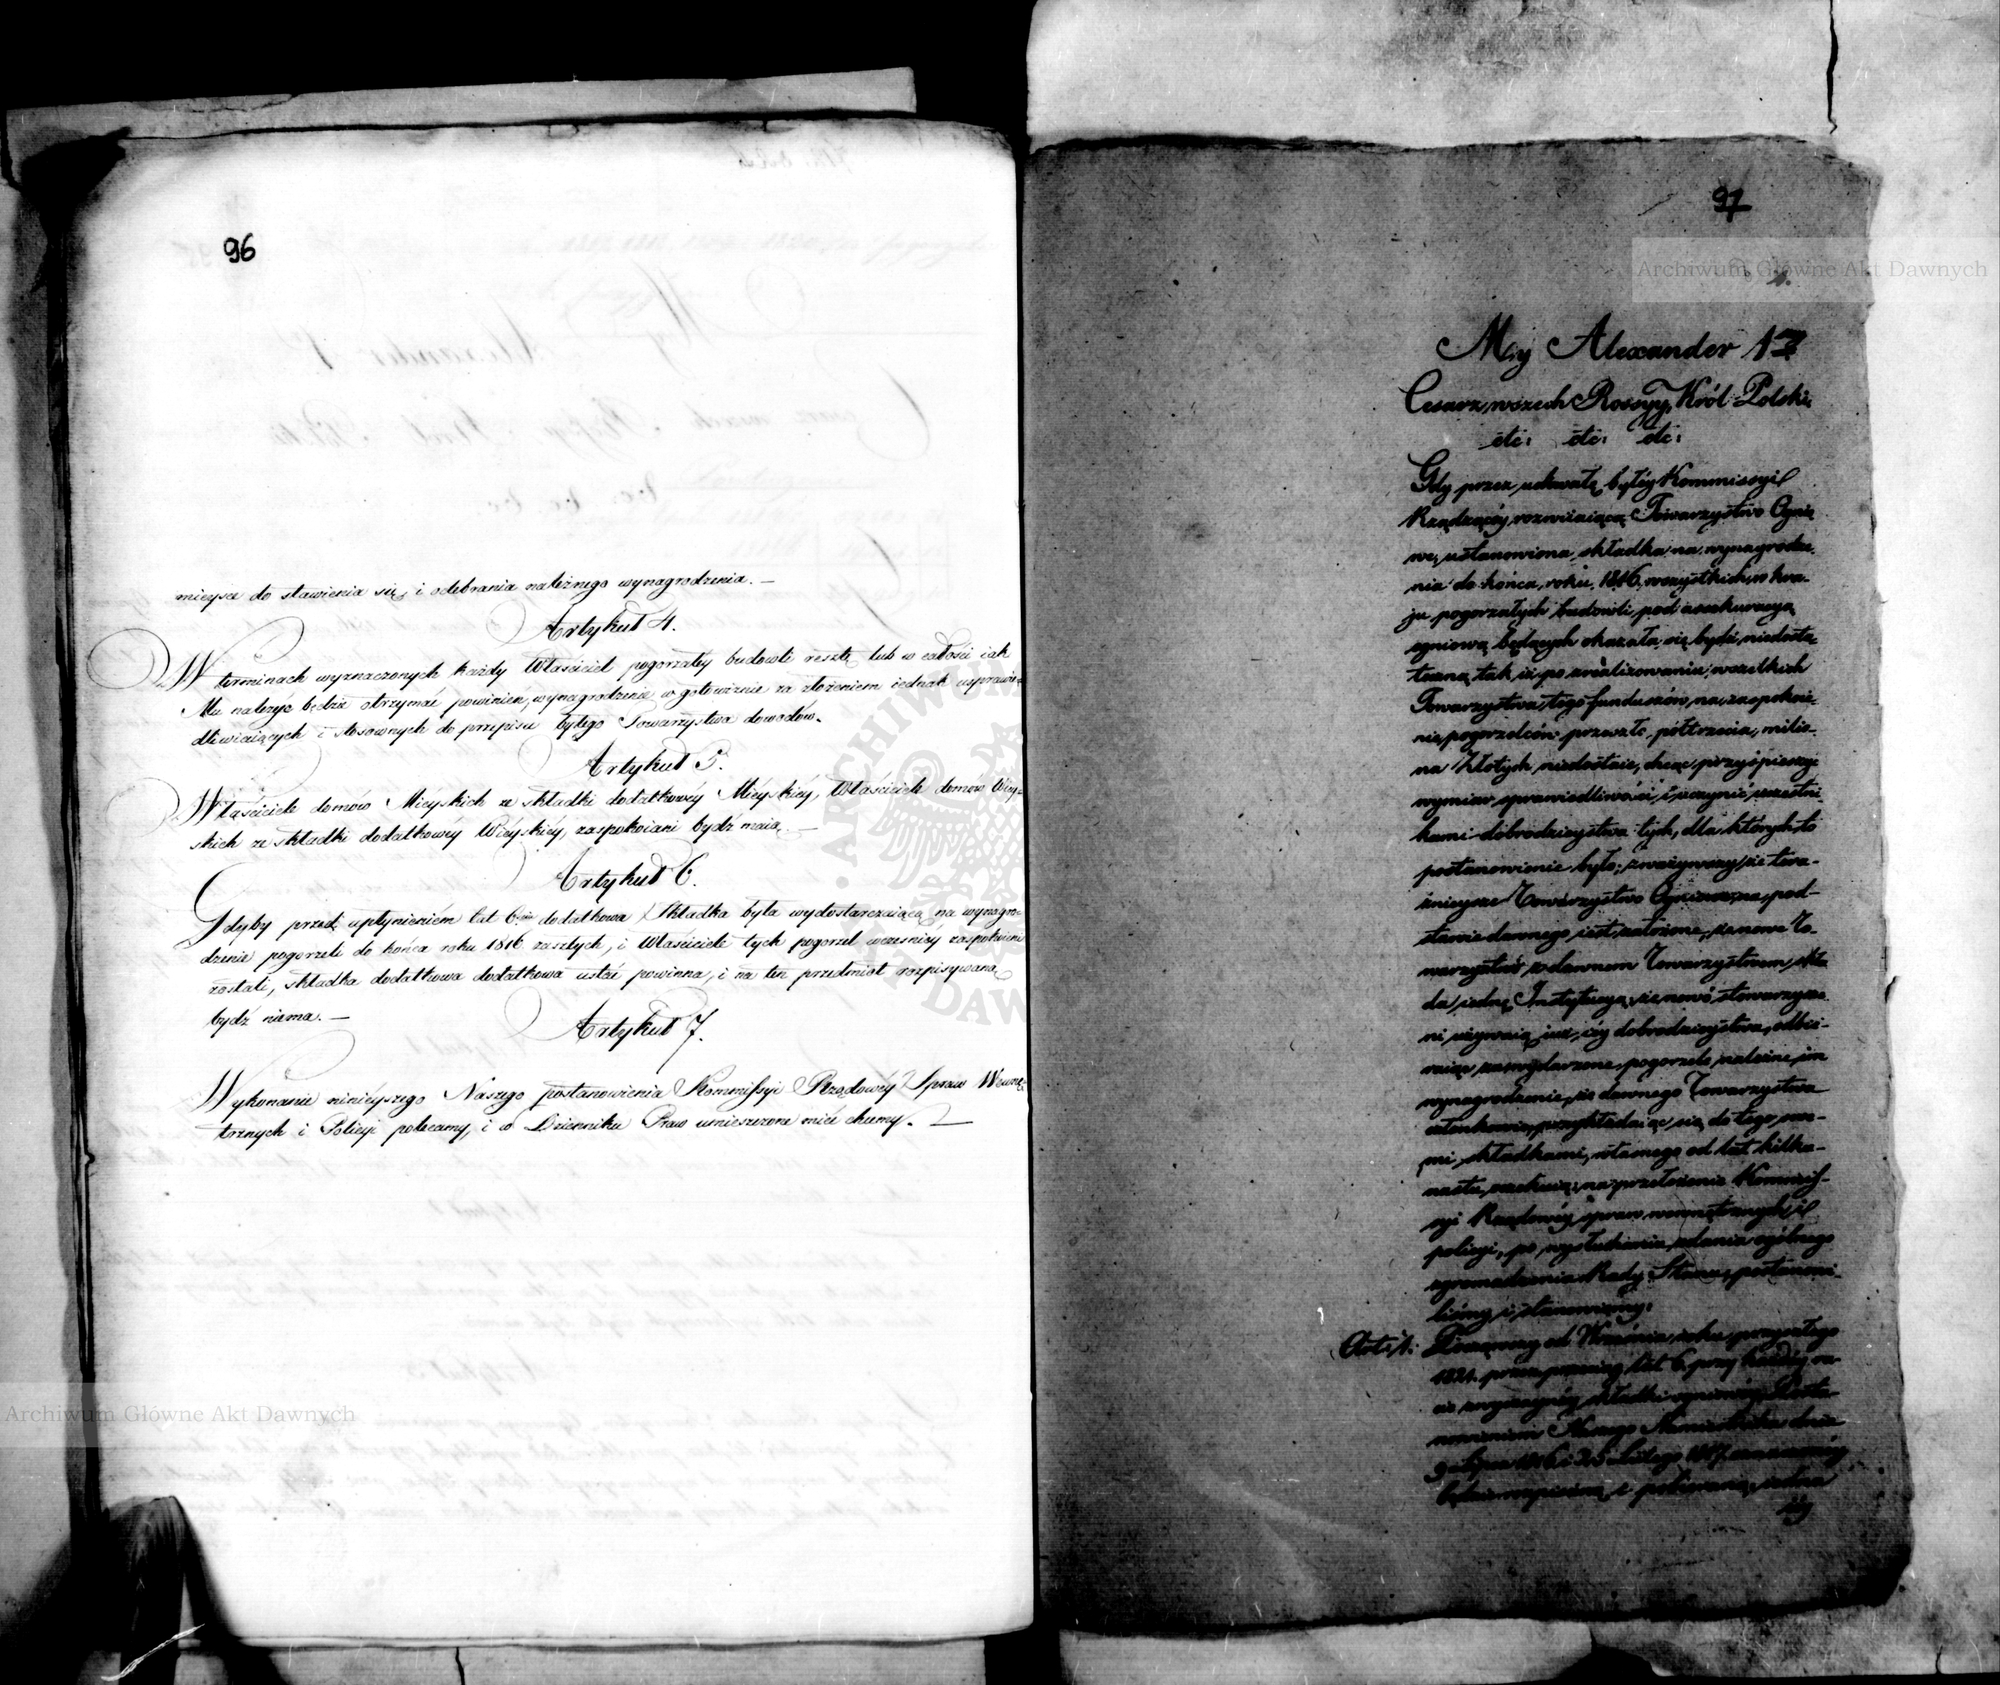 96
mieysce do stawienia się, i odebrania należnego wynagrodzenia. —
Artykuł 4.
W terminach wyznaczonych każdy Właściciel pogorzałey budowli resztę lub w całości iak
Mu należyć będzie otrzymać powinien, wynagrodzenie w gotowiźnie za złożeniem iednak usprawie
dliwiaiących i stosownych do przepisu byłego Towarzystwa dowodów.
Artykuł 5.
Właściciele domów Mieyskich ze składki dodatkowéy Mieyskiéy, Właściciele domów Wiey-
skich ze składki dodatkowéy Wieyskiéy, zaspokoiani bydź maią. —
Artykuł 6.
Gdyby przed upłynieniem lat 6ciu dodatkowa Składka była wydostarczaiącą na wynagro-
dzenie pogorzeli do końca roku 1816 zaszłych, i Właściciele tych pogorzel wcześniéy zaspokoieni
zostali, składka dodatkowa dodatkowa ustać powinna, i na ten przedmiot rozpisywaną
bydź niema. —
Artykuł 7.
Wykonanie ninieyszego Naszego postanowienia Kommissyi Rządowéy Spraw Wewnę-
trznych i Policyi polecamy, i w Dzienniku Praw umieszczone mieć chcemy. —
97
My Alexander 1
Cesarz wszech Rossyy, Król Polski
etc: etc: etc:
Gdy przez uchwałę byłéy Kommissyi
Rządzącéy rozwiniaiącą Towarzystwo Ognio
we, ustanowiona składka na wynagrodze-
nia do końca roku 1816 wszystkich w kra-
ju pogorzałych budowli pod assekuracyą
ogniową będących okazała się bydź niedosta
teczną, tak iż po zrealizowaniu wszelkich
Towarzystwa tego funduszów, na zaspokoie-
nie pogorzelców przeszło półtrzecia milio-
na Złotych niedostaie, chcąc przyśpieszyć
wymiar sprawiedliwości i uczynić uczestni-
kami dobrodzieystwa tych, dla których to
postanowienie było; zważywszy że tera-
źnieysze Towarzystwo Ogniowe na pod-
stawie dawnego iest założone, że nowe To-
warzystwo z dawnem Towarzystwem skła
da iednę Instytucyą, że nowo stowarzysze
ni używaią już iéy dobrodzieystwa, odbie-
raiąc za wydarzone pogorzele należne im
wynagrodzenie, że dawnego Towarzystwa
członkowie, przykładaiąc się do tego swe-
mi składkami, własnego od lat kilku-
nastu czekaią; na przełożenie Kommis-
syi Rządowéy spraw wewnętrznych i
policyi, po wysłuchaniu zdania ogólnego
zgromadzenia Rady Stanu, postanowi-
liśmy i stanowiemy:
Art: 1: Począwszy od Września roku przyszłego
1821. przez przeciąg lat 6. przy każdéy ra-
cie zwyczaynéy składki ogniowéy Posta-
nowieniem Naszego Namiestnika dnia
9 Lipca 1816 i 25 Lutego 1817 oznaczonéy
będzie rozpisaną i pobieraną, iedna
Archiwum Główne Akt Dawnych
Archiwum Główne Akt Dawnych